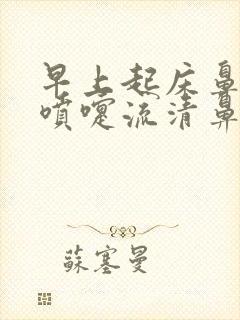 早上起床鼻
喷嚏流清鼻
蘇塞曼